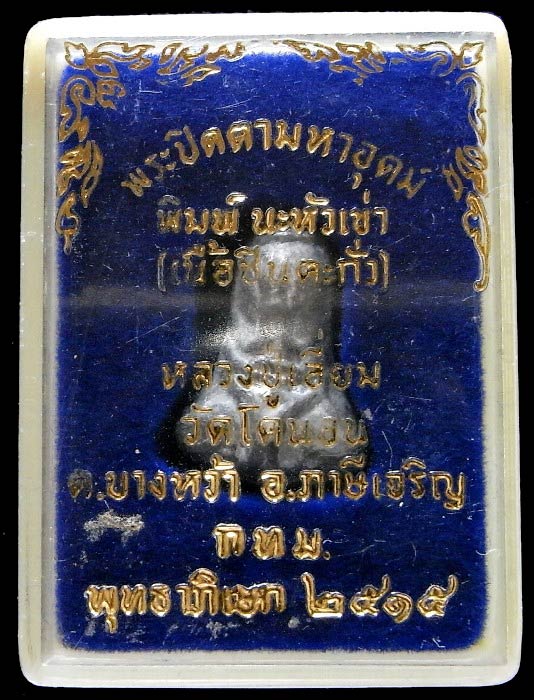 พระปิดตามหาอุตม์
พิมพ์ นะหัวเข่า
(เนื้อชินตะกั่ว)
หลวงปู่เอี่ยม
วัดโคนอน
ต.บางหว้า อ.ภาษีเจริญ
กทม.
พุทธาภิเษก ๒๕๑๕